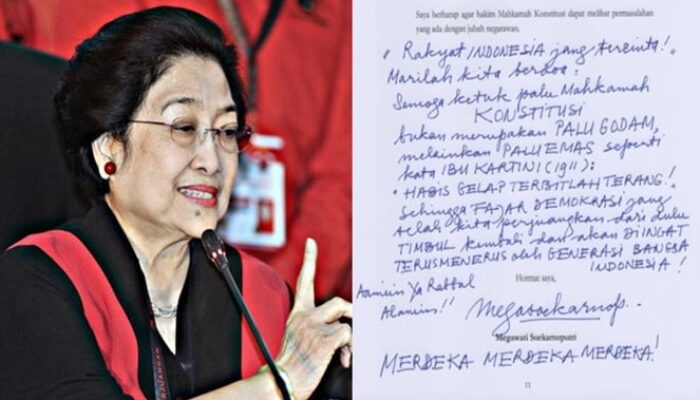 Saya berharap agar hakim Mahkamah Konstitusi dapat melihat permasalahan
yang ada dengan jubah negarawan.
" Rakyat INDONESIA jang tercinta!"
Marilah kita berdoa :
Semoga ketuk palu Mahkamah
KONSTITUSI
bukan merupakan PALU GODAM,
melainkan PALU EMAS seperti
kata IBU KARTINI (1911) :
" HABIS GELAP TERBITLAH TERANG!"
Sehingga FAJAR DEMOKRASI jang
telah kita perjuangkan dari dulu
TIMBUL kembali dan akan DIINGAT
TERUSMENERUS oleh GENERASI BANGSA
INDONESIA !
Hormat saya,
Aamiin Ya Rabbal
Alamin!!
Megasoekarnop.
Megawati Soekarnoputri
MERDEKA MERDEKA MERDEKA!
11